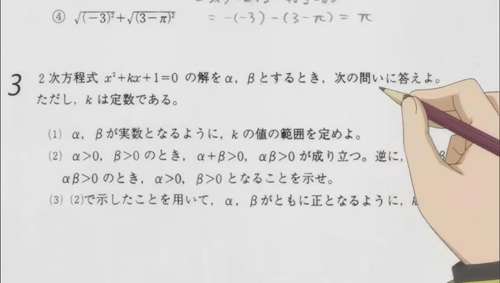 ④ √(-3)²+√(3-π)² = -(-3)-(3-π) = π
3 2次方程式 x²+kx+1=0 の解をα, βとするとき, 次の問いに答えよ。
ただし, kは定数である。
(1) α, βが実数となるように, kの値の範囲を定めよ。
(2) α>0, β>0 のとき, α+β>0, αβ>0 が成り立つ。逆に,
αβ>0 のとき, α>0, β>0 となることを示せ。
(3) (2)で示したことを用いて, α, βがともに正となるように,